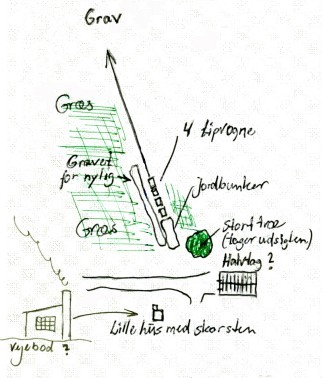 Grav
Græs
4 tipvogne
Gravet
for nylig
Jordbunker
Græs
Stort træ
(tager udsigten)
Halvtag ?
Lille hus med skorsten
Vejebod ?